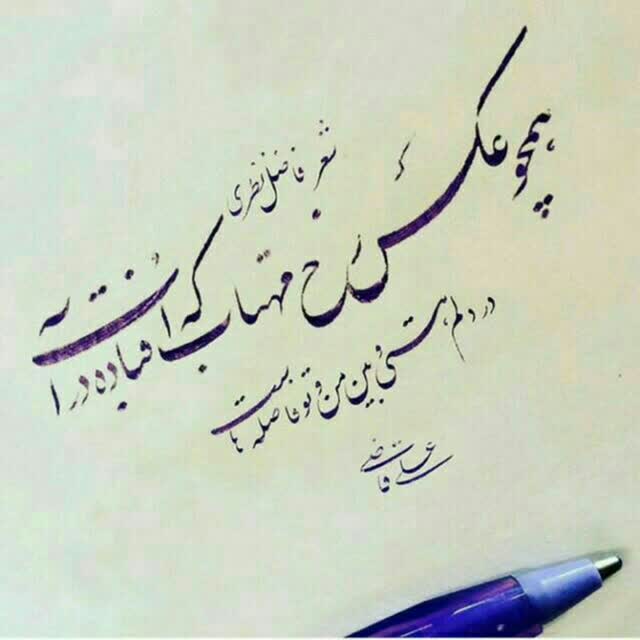 شعر: فاضل نظری
همچو عکس رخ مهتاب که افتاده در آب
در دلم هستی و بین من و تو فاصله هاست
علی قاضی